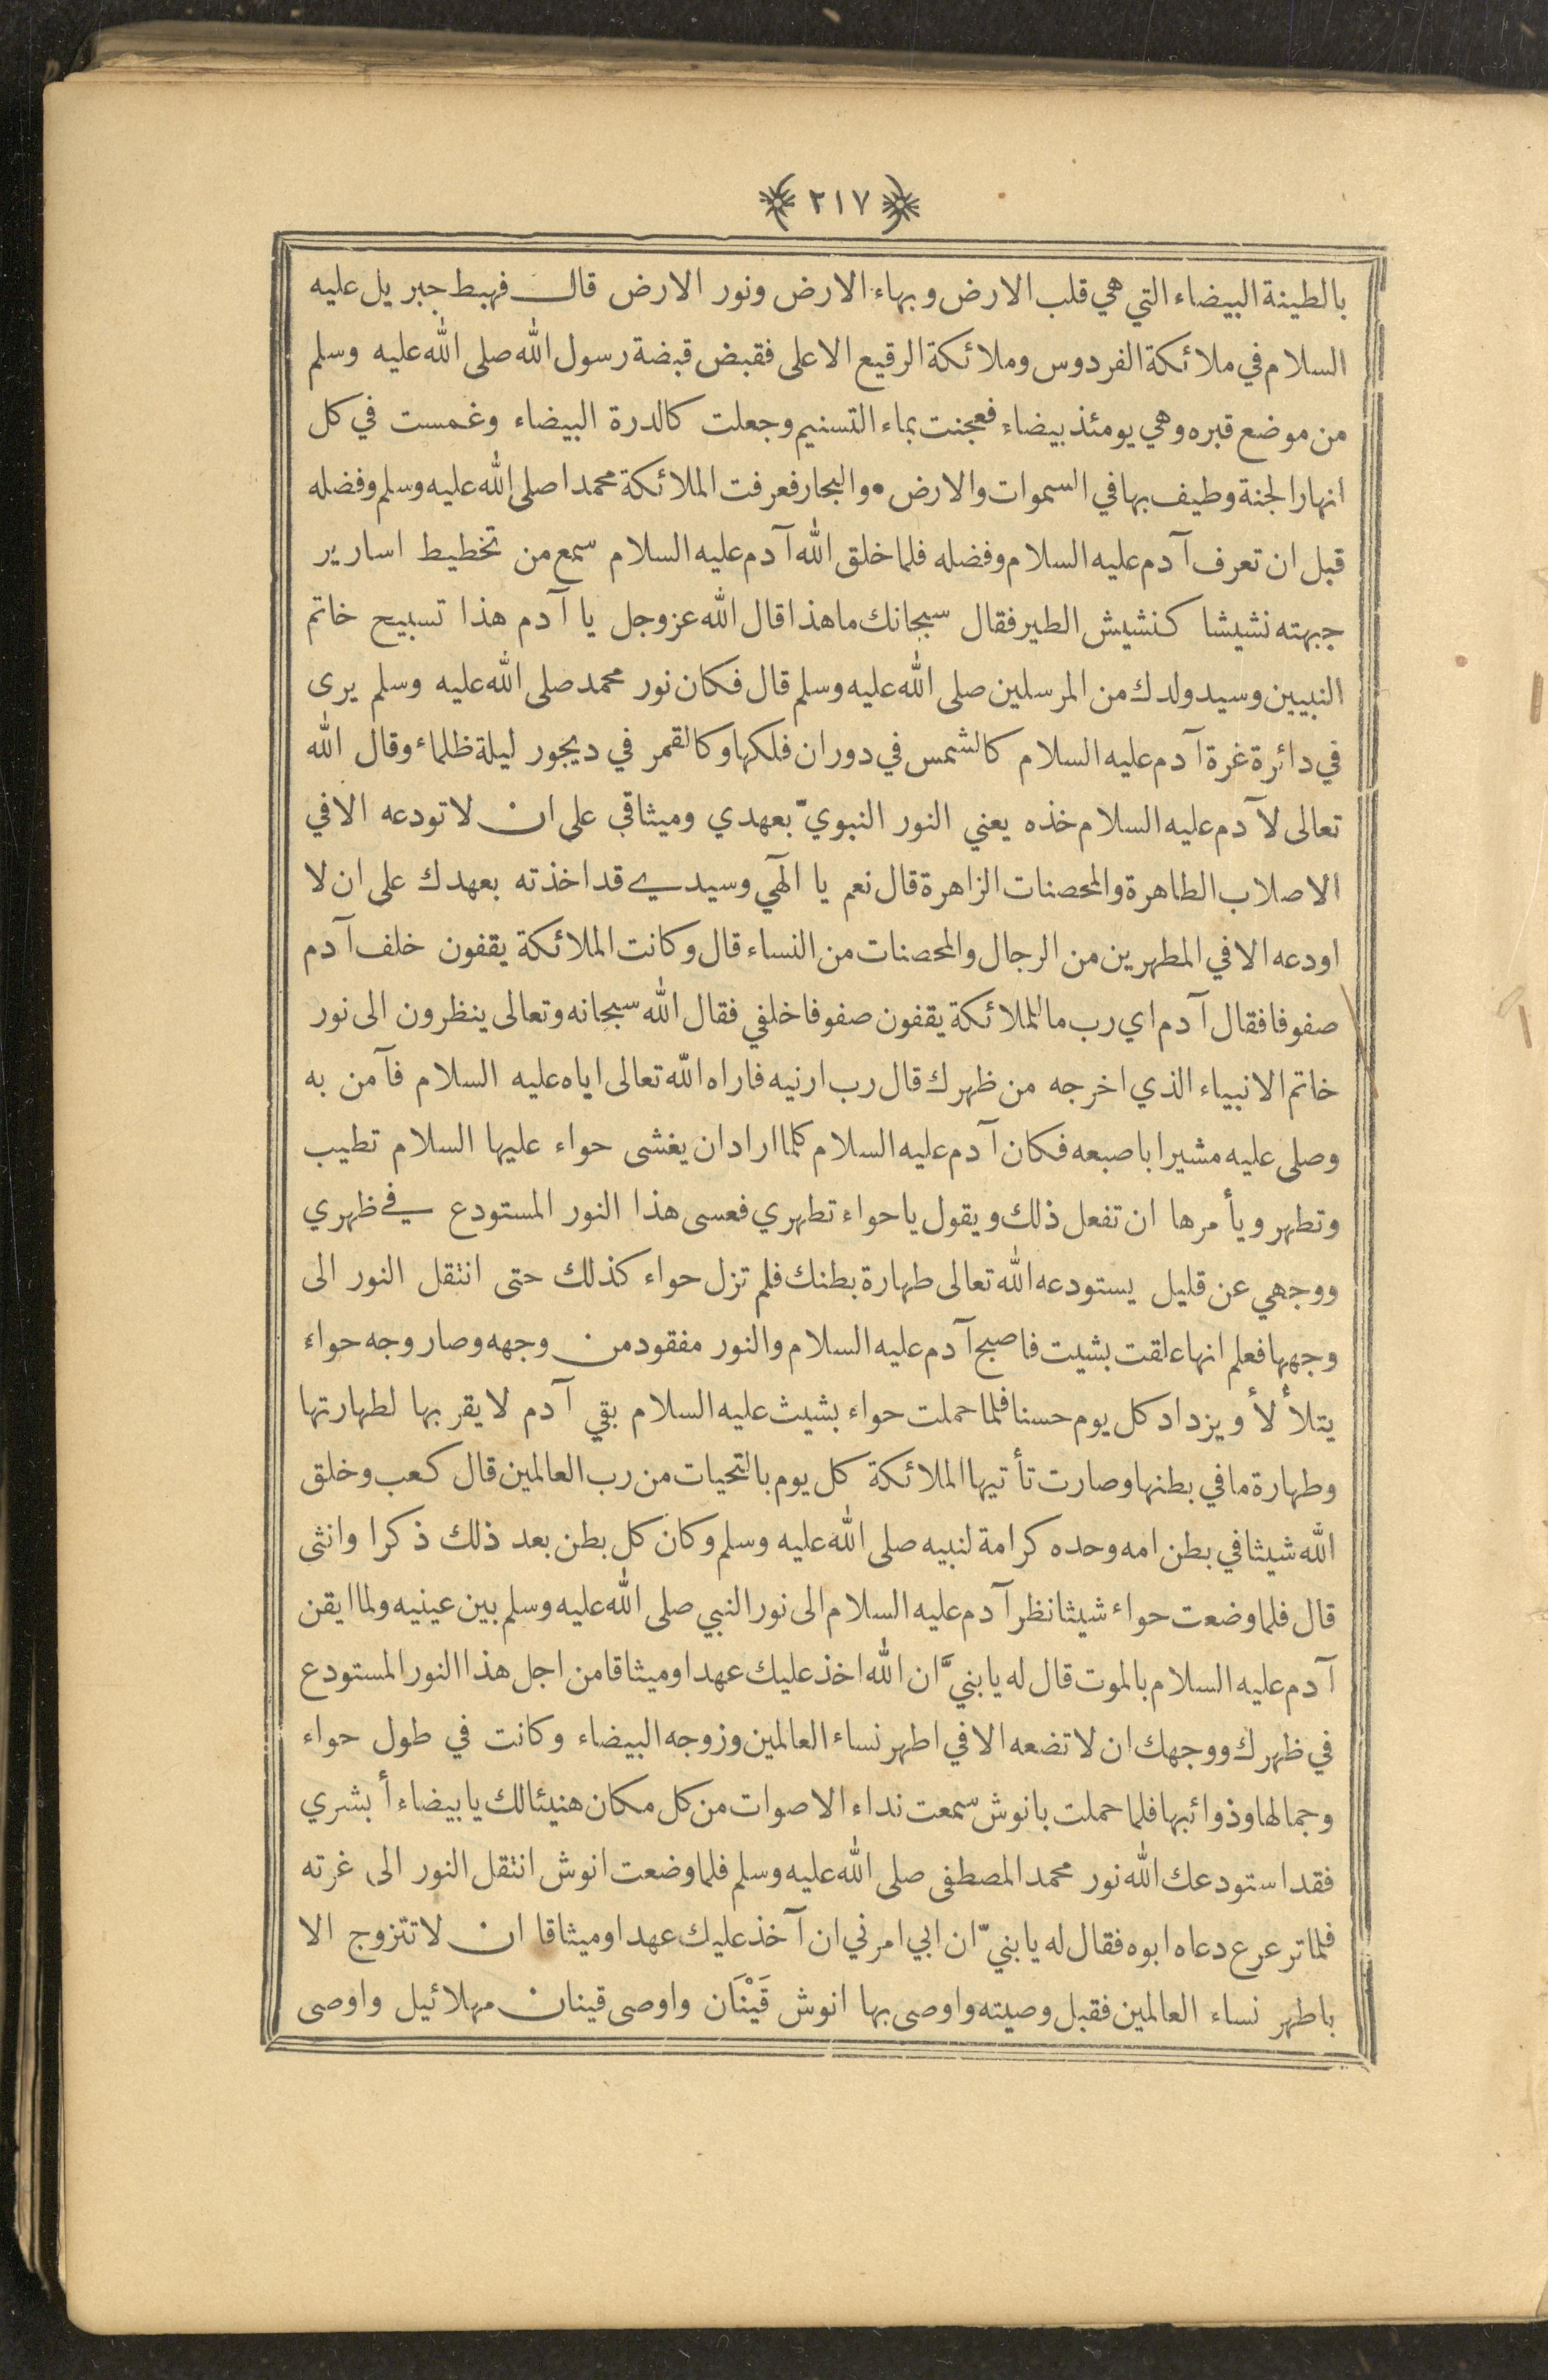 ﴿٢١٧﴾
بالطينة البيضاء التي هي قلب الارض وبهاء الارض ونور الارض قال فهبط جبريل عليه
السلام في ملائكة الفردوس وملائكة الرقيع الاعلى فقبض قبضة رسول الله صلى الله عليه وسلم
من موضع قبره وهي يومئذ بيضاء فعجنت بماء التسنيم وجعلت كالدرة البيضاء وغمست في كل
انهار الجنة وطيف بها في السموات والارض • والبحار فعرفت الملائكة محمدا صلى الله عليه وسلم وفضله
قبل ان تعرف آدم عليه السلام وفضله فلما خلق الله آدم عليه السلام سمع من تخطيط اسارير
جبهته نشيشا كنشيش الطير فقال سبحانك ما هذا قال الله عز وجل يا آدم هذا تسبيح خاتم
النبيين وسيد ولدك من المرسلين صلى الله عليه وسلم قال فكان نور محمد صلى الله عليه وسلم يرى
في دائرة غرة آدم عليه السلام كالشمس في دوران فلكها وكالقمر في ديجور ليلة ظلماء وقال الله
تعالى لآدم عليه السلام خذه يعني النور النبويّ بعهدي وميثاقي على ان لا تودعه الا في
الاصلاب الطاهرة والمحصنات الزاهرة قال نعم يا الٓهي وسيدي قد اخذته بعهدك على ان لا
اودعه الا في المطهرين من الرجال والمحصنات من النساء قال وكانت الملائكة يقفون خلف آدم
صفوفا فقال آدم اي رب ما للملائكة يقفون صفوفا خلفي فقال الله سبحانه وتعالى ينظرون الى نور
خاتم الانبياء الذي اخرجه من ظهرك قال رب ارنيه فاراه الله تعالى اياه عليه السلام فآمن به
وصلى عليه مشيرا باصبعه فكان آدم عليه السلام كلما اراد ان يغشى حواء عليها السلام تطيب
وتطهر ويأمرها ان تفعل ذلك ويقول يا حواء تطهري فعسى هذا النور المستودع في ظهري
ووجهي عن قليل يستودعه الله تعالى طهارة بطنك فلم تزل حواء كذلك حتى انتقل النور الى
وجهها فعلم انها علقت بشيت فاصبح آدم عليه السلام والنور مفقود من وجهه وصار وجه حواء
يتلألأ ويزداد كل يوم حسنا فلما حملت حواء بشيث عليه السلام بقي آدم لا يقربها لطهارتها
وطهارة ما في بطنها وصارت تأتيها الملائكة كل يوم بالتحيات من رب العالمين قال كعب وخلق
الله شيثا في بطن امه وحده كرامة لنبيه صلى الله عليه وسلم وكان كل بطن بعد ذلك ذكرا وانثى
قال فلما وضعت حواء شيثا نظر آدم عليه السلام الى نور النبي صلى الله عليه وسلم بين عينيه ولما ايقن
آدم عليه السلام بالموت قال له يا بنيَّ ان الله اخذ عليك عهدا وميثاقا من اجل هذا النور المستودع
في ظهرك ووجهك ان لا تضعه الا في اطهر نساء العالمين وزوجه البيضاء وكانت في طول حواء
وجمالها وذوائبها فلما حملت بانوش سمعت نداء الاصوات من كل مكان هنيئا لك يا بيضاء أبشري
فقد استودعك الله نور محمد المصطفى صلى الله عليه وسلم فلما وضعت انوش انتقل النور الى غرته
فلما ترعرع دعاه ابوه فقال له يا بنيّ ان ابي امرني ان آخذ عليك عهدا وميثاقا ان لا تتزوج الا
باطهر نساء العالمين فقبل وصيته واوصى بها انوش قَيْنَان واوصى قينان مهلائيل واوصى